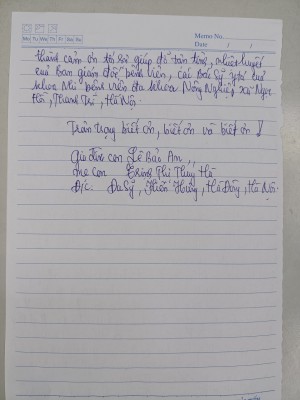 Memo No.
Mo Tu We Th Fr Sa Su
Date / /
thành cảm ơn tới sự giúp đỡ tận tình, nhiệt huyết
của Ban giám đốc bệnh viện, các bác sỹ, y tá của
khoa Nhi bệnh viện đa khoa Nông Nghiệp xã Ngọc
Hồi, Thanh Trì, Hà Nội.
Trân trọng biết ơn, biết ơn và biết ơn!
Gia đình con Lê Bảo An,
mẹ con Trịnh Thị Thuý Hà
Đ/c: Đa Sỹ, Kiến Hưng, Hà Đông, Hà Nội.